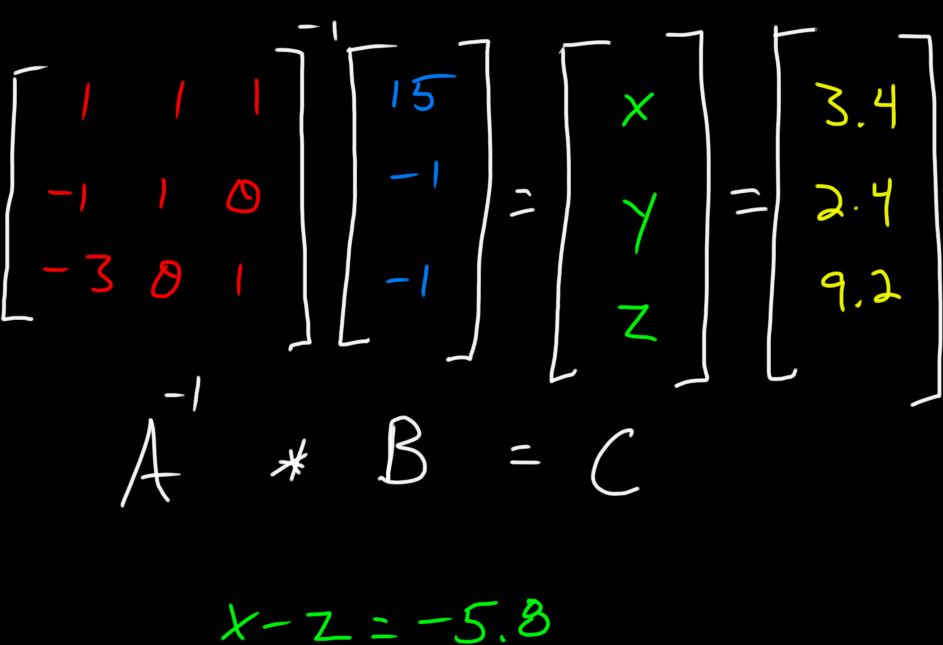 [1 1 1; -1 1 0; -3 0 1]^-1 [15; -1; -1] = [x; y; z] = [3.4; 2.4; 9.2]
A^-1 * B = C
x - z = -5.8